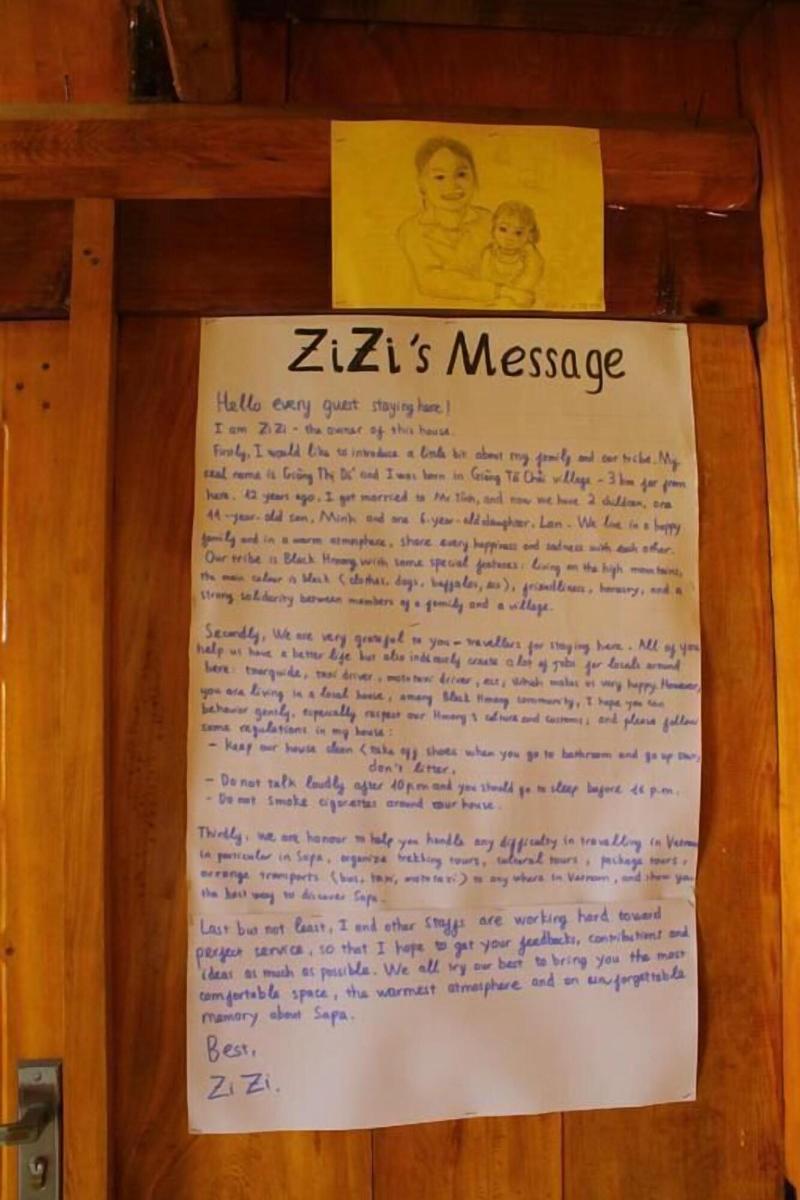 ZiZi's Message
Hello every guest staying here!
I am ZiZi - the owner of this house.
Firstly, I would like to introduce a little bit about my family and our tribe. My
real name is Giàng Thị Dí and I was born in Giàng Tả Chải village - 3 km far from
here. 12 years ago, I got married to Mr Tình, and now we have 2 children, one
11-year-old son, Minh and one 6-year-old daughter, Lan. We live in a happy
family and in a warm atmosphere, share every happiness and sadness with each other.
Our tribe is Black Hmong with some special features: living on the high mountains,
the main colour is black (clothes, dogs, buffalos, etc), friendliness, honesty, and a
strong solidarity between members of a family and a village.
Secondly, We are very grateful to you - travellers for staying here. All of you
help us have a better life but also create a lot of jobs for locals around
here: tourguide, taxi driver, mototaxi driver, etc, which makes us very happy. However,
you are living in a local house, among Black Hmong community, I hope you can
behavior gently, especially respect our Hmong's culture and customs, and please follow
some regulations in my house:
- Keep our house clean (take off shoes when you go to bathroom and go up
don't litter.
- Do not talk loudly after 10 p.m and you should go to sleep before p.m.
- Do not smoke cigarettes around our house.
Thirdly, we are honour to help you handle any difficulty in travelling in Vietnam
in particular in Sapa, organize trekking tours, cultural tours, package tours,
arrange transports (bus, taxi, mototaxi) to any where in Vietnam, and show you
the best way to discover Sapa.
Last but not least, I and other staffs are working hard toward
perfect service, so that I hope to get your feedbacks, contributions and
ideas as much as possible. We all try our best to bring you the most
comfortable space, the warmest atmosphere and an unforgettable
memory about Sapa.
Best,
Zi Zi.